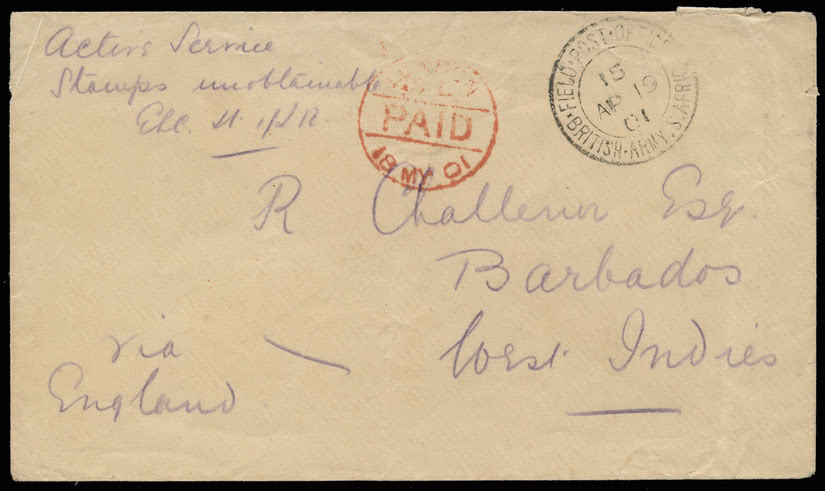 Active Service
Stamps unobtainable
PAID
18 MY 01
FIELD·POST·OFFICE
15
AP 19
01
BRITISH·ARMY·S.AFRIC
R Challenor Esq.
Barbados
West Indies
via
England